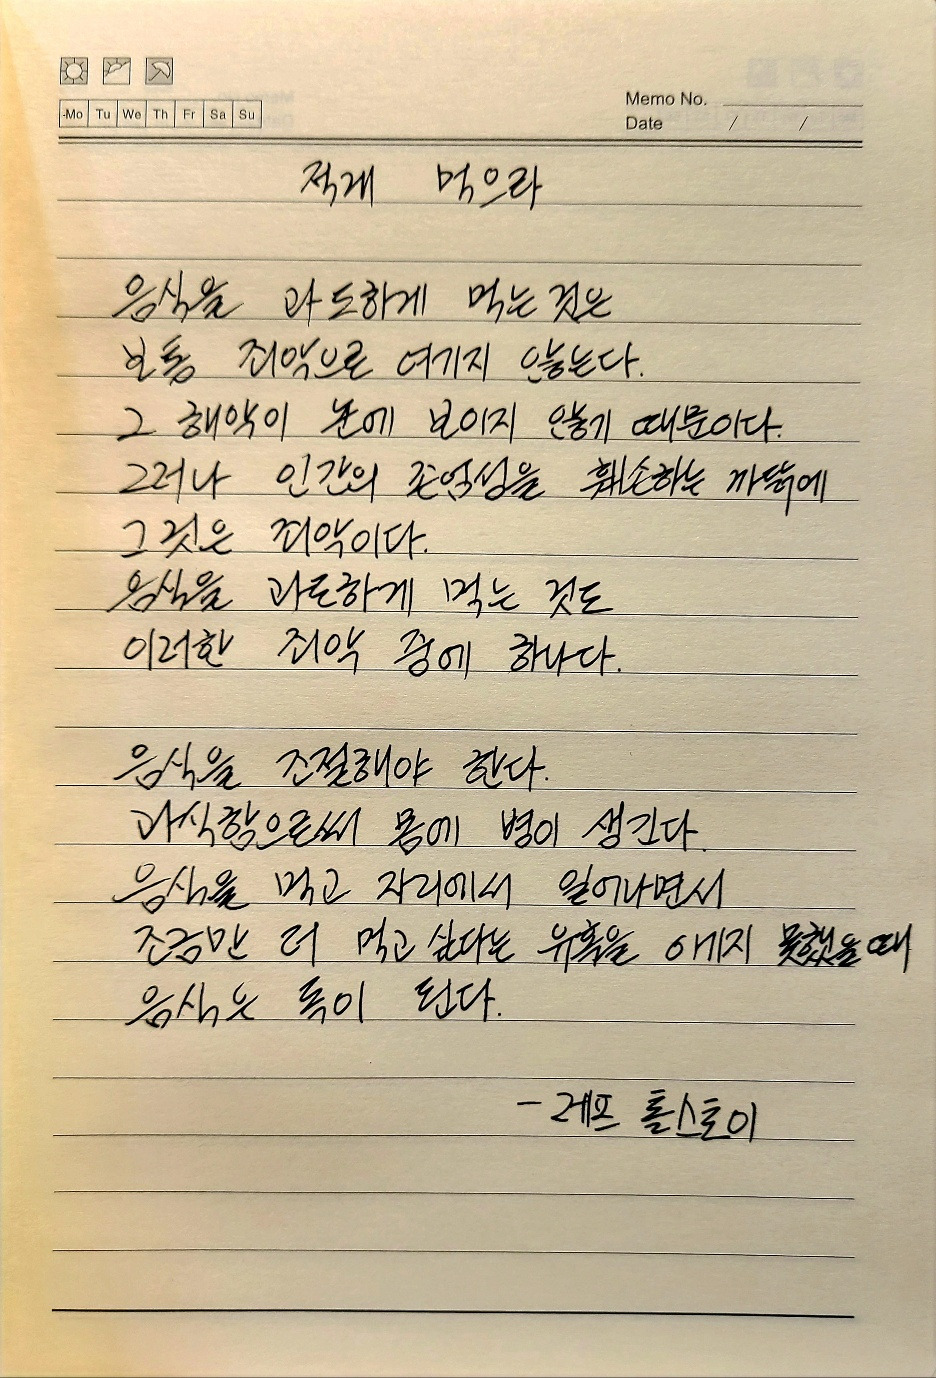 Mo Tu We Th Fr Sa Su
Memo No.
Date / /
적게 먹으라
음식을 과도하게 먹는 것은
보통 죄악으로 여기지 않는다.
그 해악이 눈에 보이지 않기 때문이다.
그러나 인간의 존엄성을 훼손하는 까닭에
그것은 죄악이다.
음식을 과도하게 먹는 것도
이러한 죄악 중에 하나다.
음식을 조절해야 한다.
과식함으로써 몸에 병이 생긴다.
음식을 먹고 자리에서 일어나면서
조금만 더 먹고 싶다는 유혹을 이기지 못했을 때
음식은 독이 된다.
- 레프 톨스토이